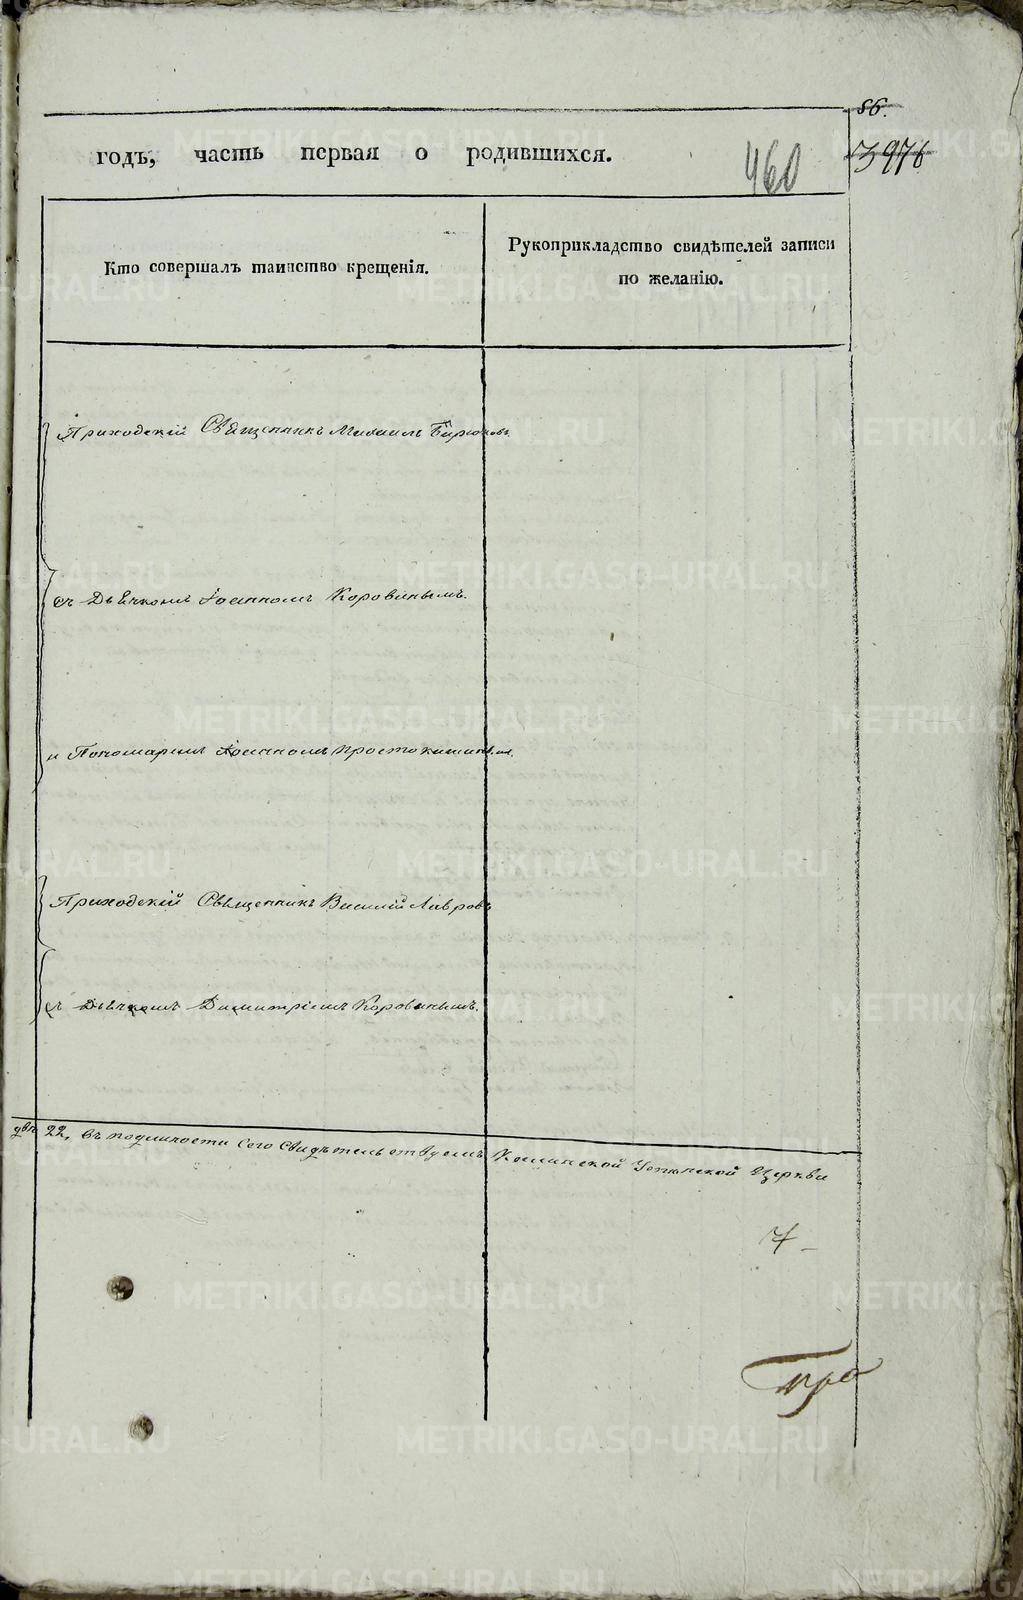 86.
годъ, часть первая о родившихся.
460
Кто совершалъ таинство крещенія.
Рукоприкладство свидѣтелей записи
по желанію.
Приходскій Священникъ Михаилъ Бирюковъ.
съ Дьячкомъ Іоанномъ Коровинымъ.
и Пономаремъ Іоанномъ Простокишинымъ.
Приходскій Священникъ Василій Лавровъ
съ Дьячкомъ Димитріемъ Коровинымъ.
22, въ подлиности сего свидѣтельствуемъ Каслинской Успенской Церкви
7
Про
METRIKI.GASO-URAL.RU